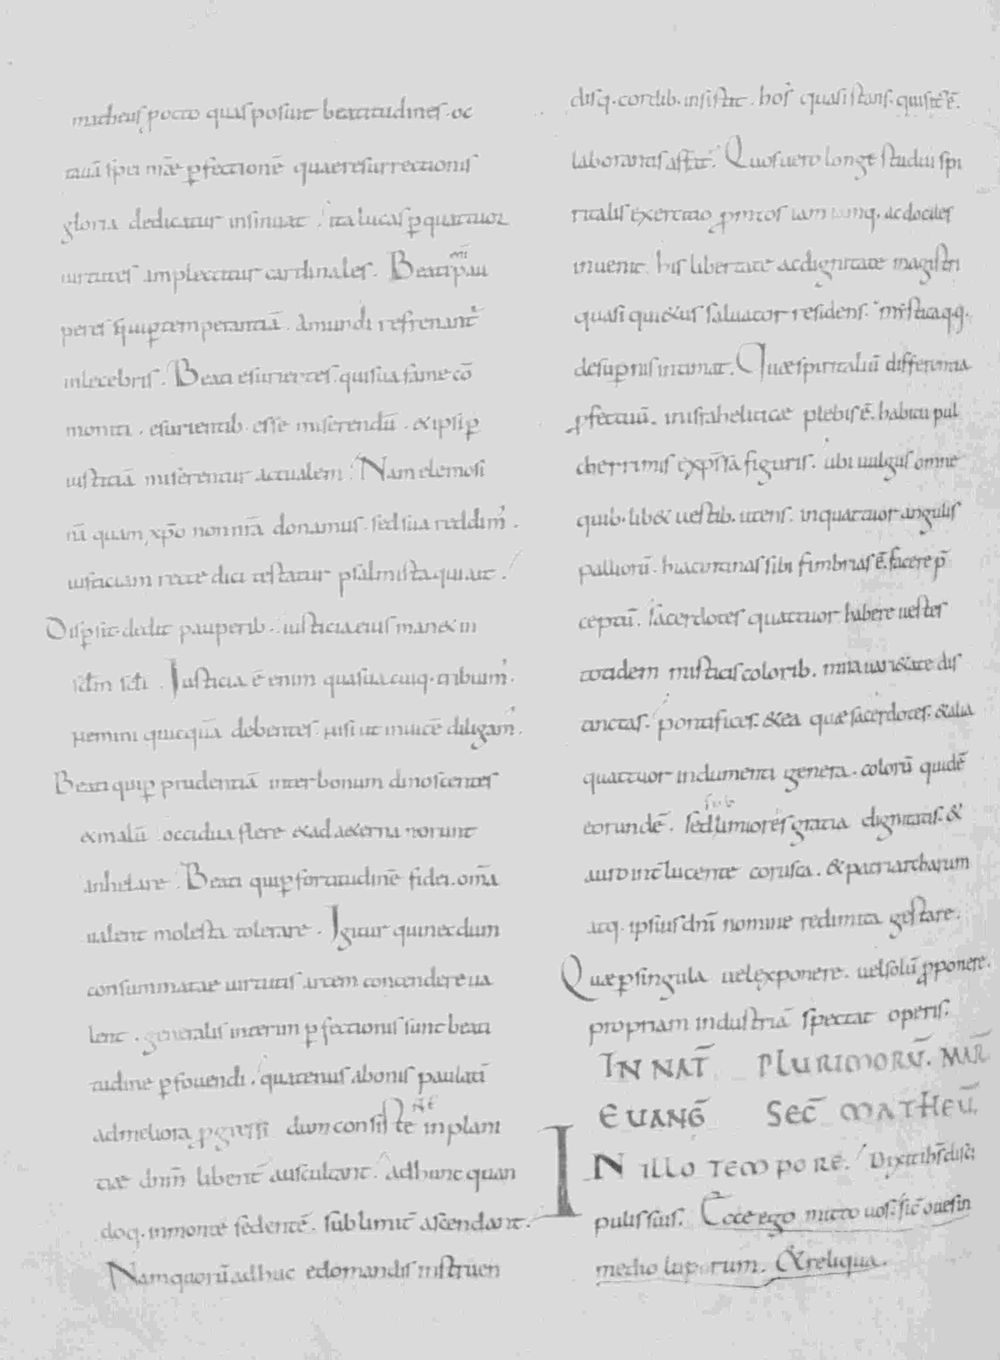 matheus porro quas posuit beatitudines· oc
tauā spei māe pfectionē quae resurrectionis
gloria dedicatur insinuat· ita lucas p quattuor
uirtutes amplectitur cardinales· Beati paū
peres qui p temperantiā· a mundi refrenant᷑
inlecebris· Beati esurientes· qui sua fame cō
moniti· esurientib· esse miserendū· & ipsi p
iusticiā miserentur actualem· Nam elemosi
nā quam xp̄o non n̄rā donamus· sed sua reddim᷒·
iusticiam recte dici testatur psalmista qui ait·
Dispsit dedit pauperib· iusticia eius man& in
sc̄lm sc̄li· Iusticia ē enim qua sua cuiq· tribuim᷒·
nemini quicquā debentes· nisi ut inuicē diligam᷒·
Beati qui p prudentiā inter bonum dinoscentes
& malū· occidua flere & ad aeterna norunt
anhelare· Beati qui p fortitudinē fidei· om̄a
ualent molesta tolerare· Igitur qui necdum
consummatae uirtutis arcem conscendere ua
lent· generalis interim pfectionis sunt beati
tudine pfouendi· quatenus a bonis paulatī
ad meliora pgressi dum consistē in plani
tiae dn̄m libent᷑ auscultant· ad hunc quan
doq· in monte sedentē· sublimit᷑ ascendant·
Nam quorū adhuc edomandis instruen
disq· cordib· insistit· hos quasi stans· quisitē·
laborantis astat· Quos uero longe studii spi
ritalis exercitio pmtos iam iamq· ac dociles
inuenit· his libertate ac dignitate magistri
quasi qui&us saluator residens· mistica qq·
de supnis intimat· Quae spiritaliū differentia
pfectiuū· in israheliticae plebis ē· habitu pul
cherrimis exp̄ssa figuris· ubi uulgus omne
quib· lib& uestib· utens· in quattuor angulis
palliorū· hiacintinas sibi fimbrias ē· facere p̄
ceptū· sacerdotes quattuor habere uestes
totidem misticis colorib· mira uari&ate dis
tinctas· pontifices· & ea quae sacerdotes· & alia
quattuor indumenti genera· colorū quidē
eorundē· sed sublimiores gratia dignitatis· &
auro int᷑lucente corusca· & patriarcharum
atq· ipsius dn̄i nomine redimita gestare·
Quae p singula uel exponere· uel solū pponere·
propriam industriā spectat operis·
IN NAT̄ PLURIMORŪ· MAR̄
EUANḠ SEC̄ MATHEŪ·
IN ILLO TEMPORE· Dixit ihs̄ disci
pulis suis· Ecce ego mitto uos· sic̄ oues in
medio luporum· & reliqua·